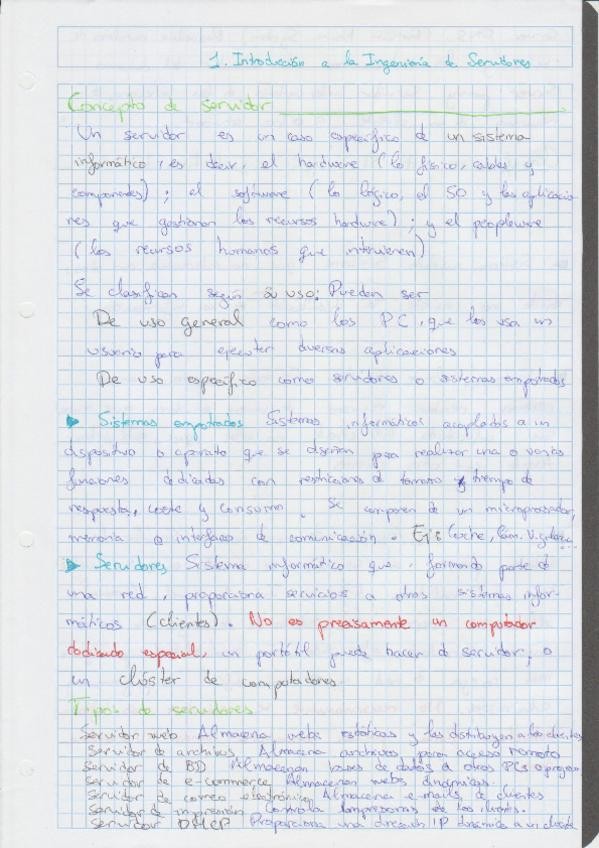 1. Introducción a la Ingeniería de Servidores
Concepto de servidor
Un servidor es un caso específico de un sistema
informático, es decir, el hardware (lo físico, cables y
componentes); el software (lo lógico, el SO y las aplicacio
nes que gestionan los recursos hardware); y el peopleware
(los recursos humanos que intervienen)
Se clasifican según su uso: Pueden ser
De uso general como los PC, que los usa un
usuario para ejecutar diversas aplicaciones
De uso específico como servidores o sistemas empotrados
Sistemas empotrados Sistemas informáticos acoplados a un
dispositivo o aparato que se diseñan para realizar una o varias
funciones dedicadas con restricciones de tamaño y tiempo de
respuesta, coste y consumo. Se componen de un microprocesador,
memoria e interfaces de comunicación. Ej: Coche, Cam. Vigilanc...
Servidores Sistema informático que, formando parte de
una red, proporciona servicios a otros sistemas infor-
máticos (clientes). No es precisamente un computador
dedicado especial, un portátil puede hacer de servidor, o
un clúster de computadores.
Tipos de servidores
Servidor web Almacena webs estáticas y las distribuyen a los clientes
Servidor de archivos Almacena archivos para acceso remoto
Servidor de BD Almacenan bases de datos a otros PCs o program
Servidor de e-commerce Almacenan webs dinámicas.
Servidor de correo electrónico Almacena e-mails de clientes
Servidor de impresión Controla impresoras de los clientes.
Servidor DHCP Proporciona una dirección IP dinámica a un cliente